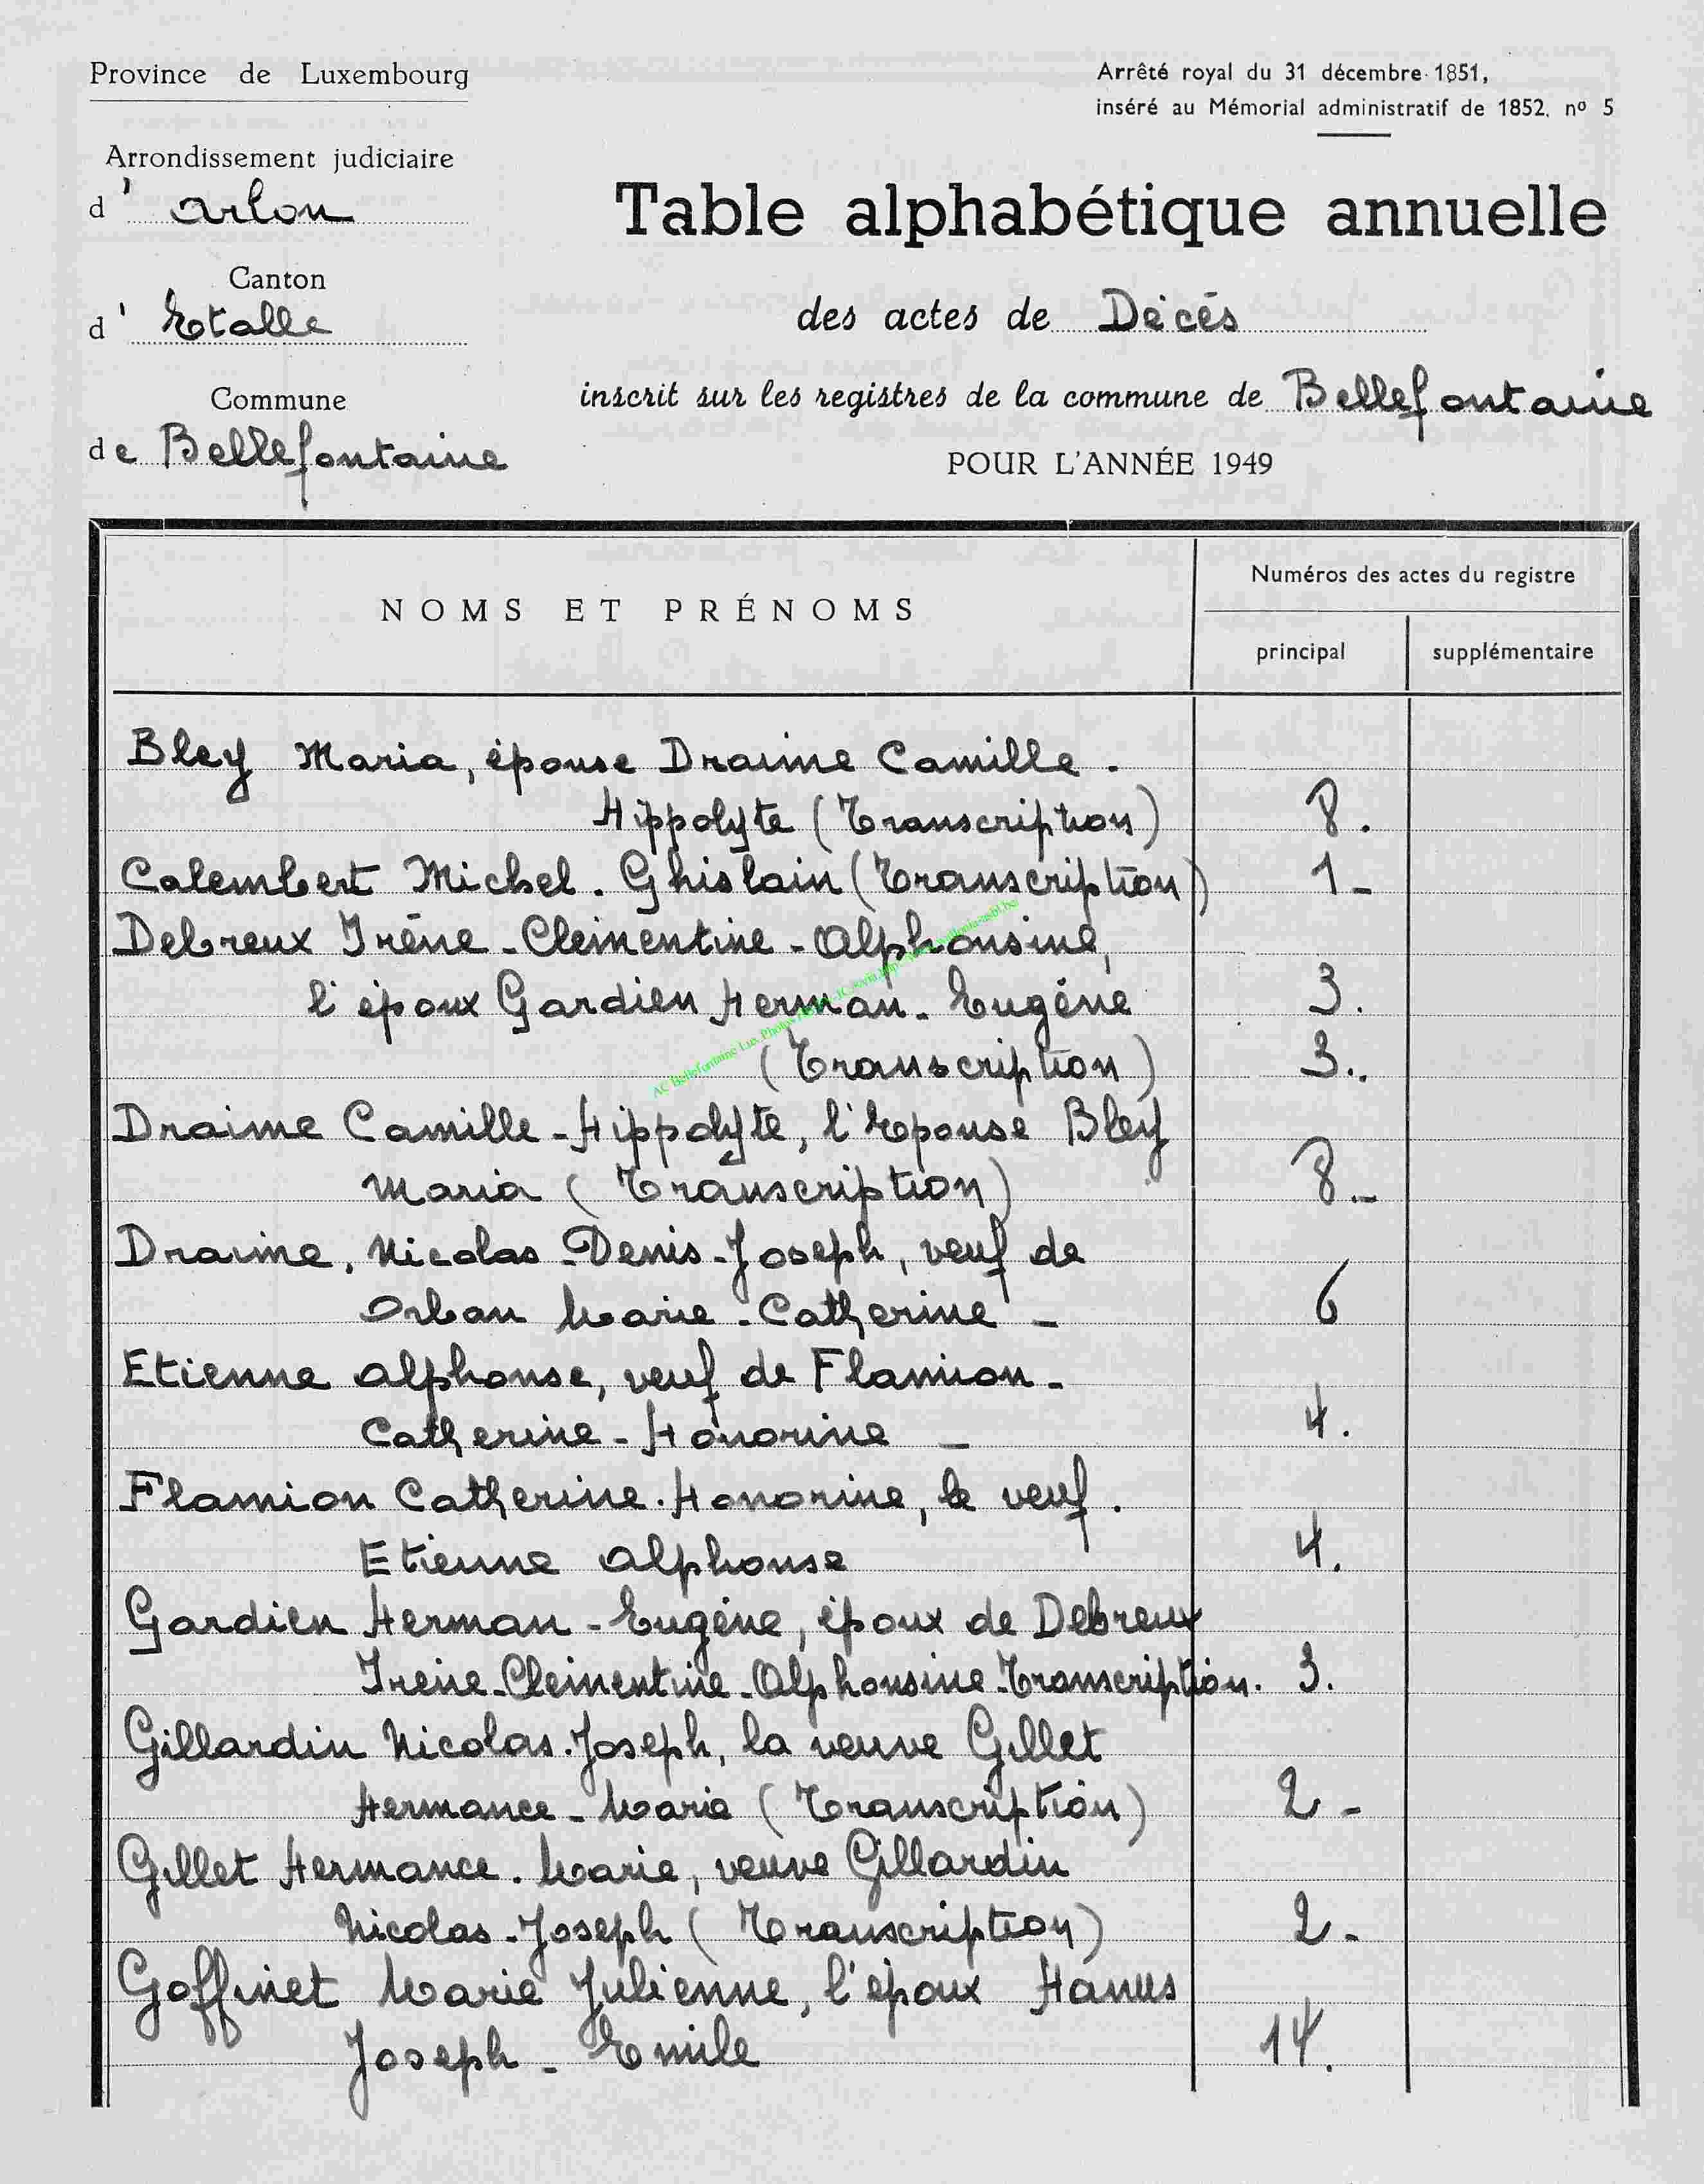 Province de Luxembourg
Arrêté royal du 31 décembre 1851,
inséré au Mémorial administratif de 1852, nº 5
Arrondissement judiciaire
d' Arlon
Table alphabétique annuelle
Canton
d' Etalle
des actes de Décès
Commune
de Bellefontaine
inscrit sur les registres de la commune de Bellefontaine
POUR L'ANNÉE 1949
NOMS ET PRÉNOMS
Numéros des actes du registre
principal
supplémentaire
Bley Maria, épouse Draime Camille.
Hippolyte (Transcription) 8.
Calembert Michel. Ghislain (Transcription) 1-
Debreux Irène-Clémentine-Alphonsine,
l'époux Gardien Herman-Eugène 3.
(Transcription) 3..
Draime Camille-Hippolyte, l'Epouse Bley
Maria (Transcription) 8.-
Draime, Nicolas-Denis-Joseph, veuf de
Orban Marie-Catherine - 6
Etienne Alphonse, veuf de Flamion-
Catherine-Honorine - 4.
Flamion Catherine. Honorine, le veuf.
Etienne Alphonse 4.
Gardien Herman-Eugène, époux de Debreux
Irène-Clémentine-Alphonsine-Transcription. 3.
Gillardin Nicolas.Joseph, la veuve Gillet
Hermance-Marie (Transcription) 2-
Gillet Hermance.Marie, veuve Gillardin
Nicolas-Joseph (Transcription) 2-
Goffinet Marie Julienne, l'époux Hanus
Joseph-Emile 14.